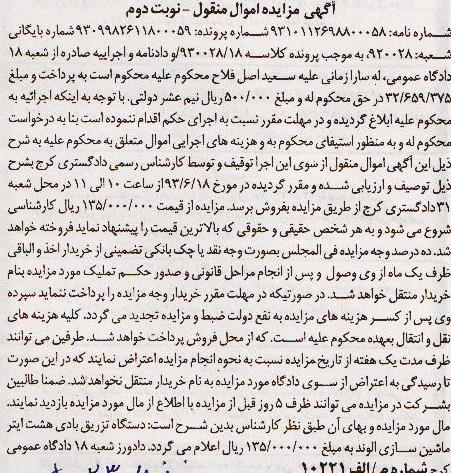 آگهی مزایده اموال منقول - نوبت دوم
شماره نامه: ۹۳۱۰۱۱۲۶۹۸۸۰۰۰۵۸ شماره پرونده: ۹۳۰۹۹۸۲۶۱۱۸۰۰۰۵۹ شماره بایگانی
شعبه: ۹۲۰۰۲۸، به موجب پرونده کلاسه ۹۳۰۰۲۸/۱۸/و دادنامه و اجراییه صادره از شعبه ۱۸
دادگاه عمومی، له سارا زمانی علیه سعید اصل فلاح محکوم علیه محکوم است به پرداخت و مبلغ
۳۲/۶۵۹/۳۷۵ در حق محکوم له و مبلغ ۵۰۰/۰۰۰ ریال نیم عشر دولتی. با توجه به اینکه اجرائیه به
محکوم علیه ابلاغ گردیده و در مهلت مقرر نسبت به اجرای حکم اقدام ننموده است بنا به درخواست
محکوم له و به منظور استیفای محکوم به و هزینه های اجرایی اموال متعلق به محکوم علیه به شرح
ذیل این آگهی اموال منقول از سوی این اجرا توقیف و توسط کارشناس رسمی دادگستری کرج بشرح
ذیل توصیف و ارزیابی شده و مقرر گردیده در مورخ ۹۳/۶/۱۸ از ساعت ۱۰ الی ۱۱ در محل شعبه
۳۱ دادگستری کرج از طریق مزایده بفروش برسد. مزایده از قیمت ۱۳۵/۰۰۰/۰۰۰ ریال کارشناسی
شروع می شود و به هر شخص حقیقی و حقوقی که بالاترین قیمت را پیشنهاد نماید فروخته خواهد
شد. ده درصد وجه مزایده فی المجلس بصورت وجه نقد یا چک بانکی تضمینی از خریدار اخذ و الباقی
ظرف یک ماه از وی وصول و پس از انجام مراحل قانونی و صدور حکم تملیک مورد مزایده بنام
خریدار منتقل خواهد شد. در صورتیکه در مهلت مقرر خریدار وجه مزایده را پرداخت ننماید سپرده
وی پس از کسر هزینه های مزایده به نفع دولت ضبط و مزایده تجدید می گردد. کلیه هزینه های
نقل و انتقال بعهده محکوم علیه است. که از محل فروش پرداخت خواهد شد. طرفین می توانند
ظرف مدت یک هفته از تاریخ مزایده نسبت به نحوه انجام مزایده اعتراض نمایند که در این صورت
تا رسیدگی به اعتراض از سوی دادگاه مورد مزایده به نام خریدار منتقل نخواهد شد. ضمنا طالبین
بشرکت در مزایده می توانند ظرف ۵ روز قبل از مزایده با اطلاع از مال مورد مزایده بازدید نمایند.
مال مورد مزایده و بهای آن طبق نظر کارشناس بدین شرح است: دستگاه تزریق بادی هشت ایتر
ماشین سازی الوند به مبلغ ۱۳۵/۰۰۰/۰۰۰ ریال اعلام می گردد. دادورز شعبه ۱۸ دادگاه عمومی
کرج شماره م / الف ۱۰۲۲۱